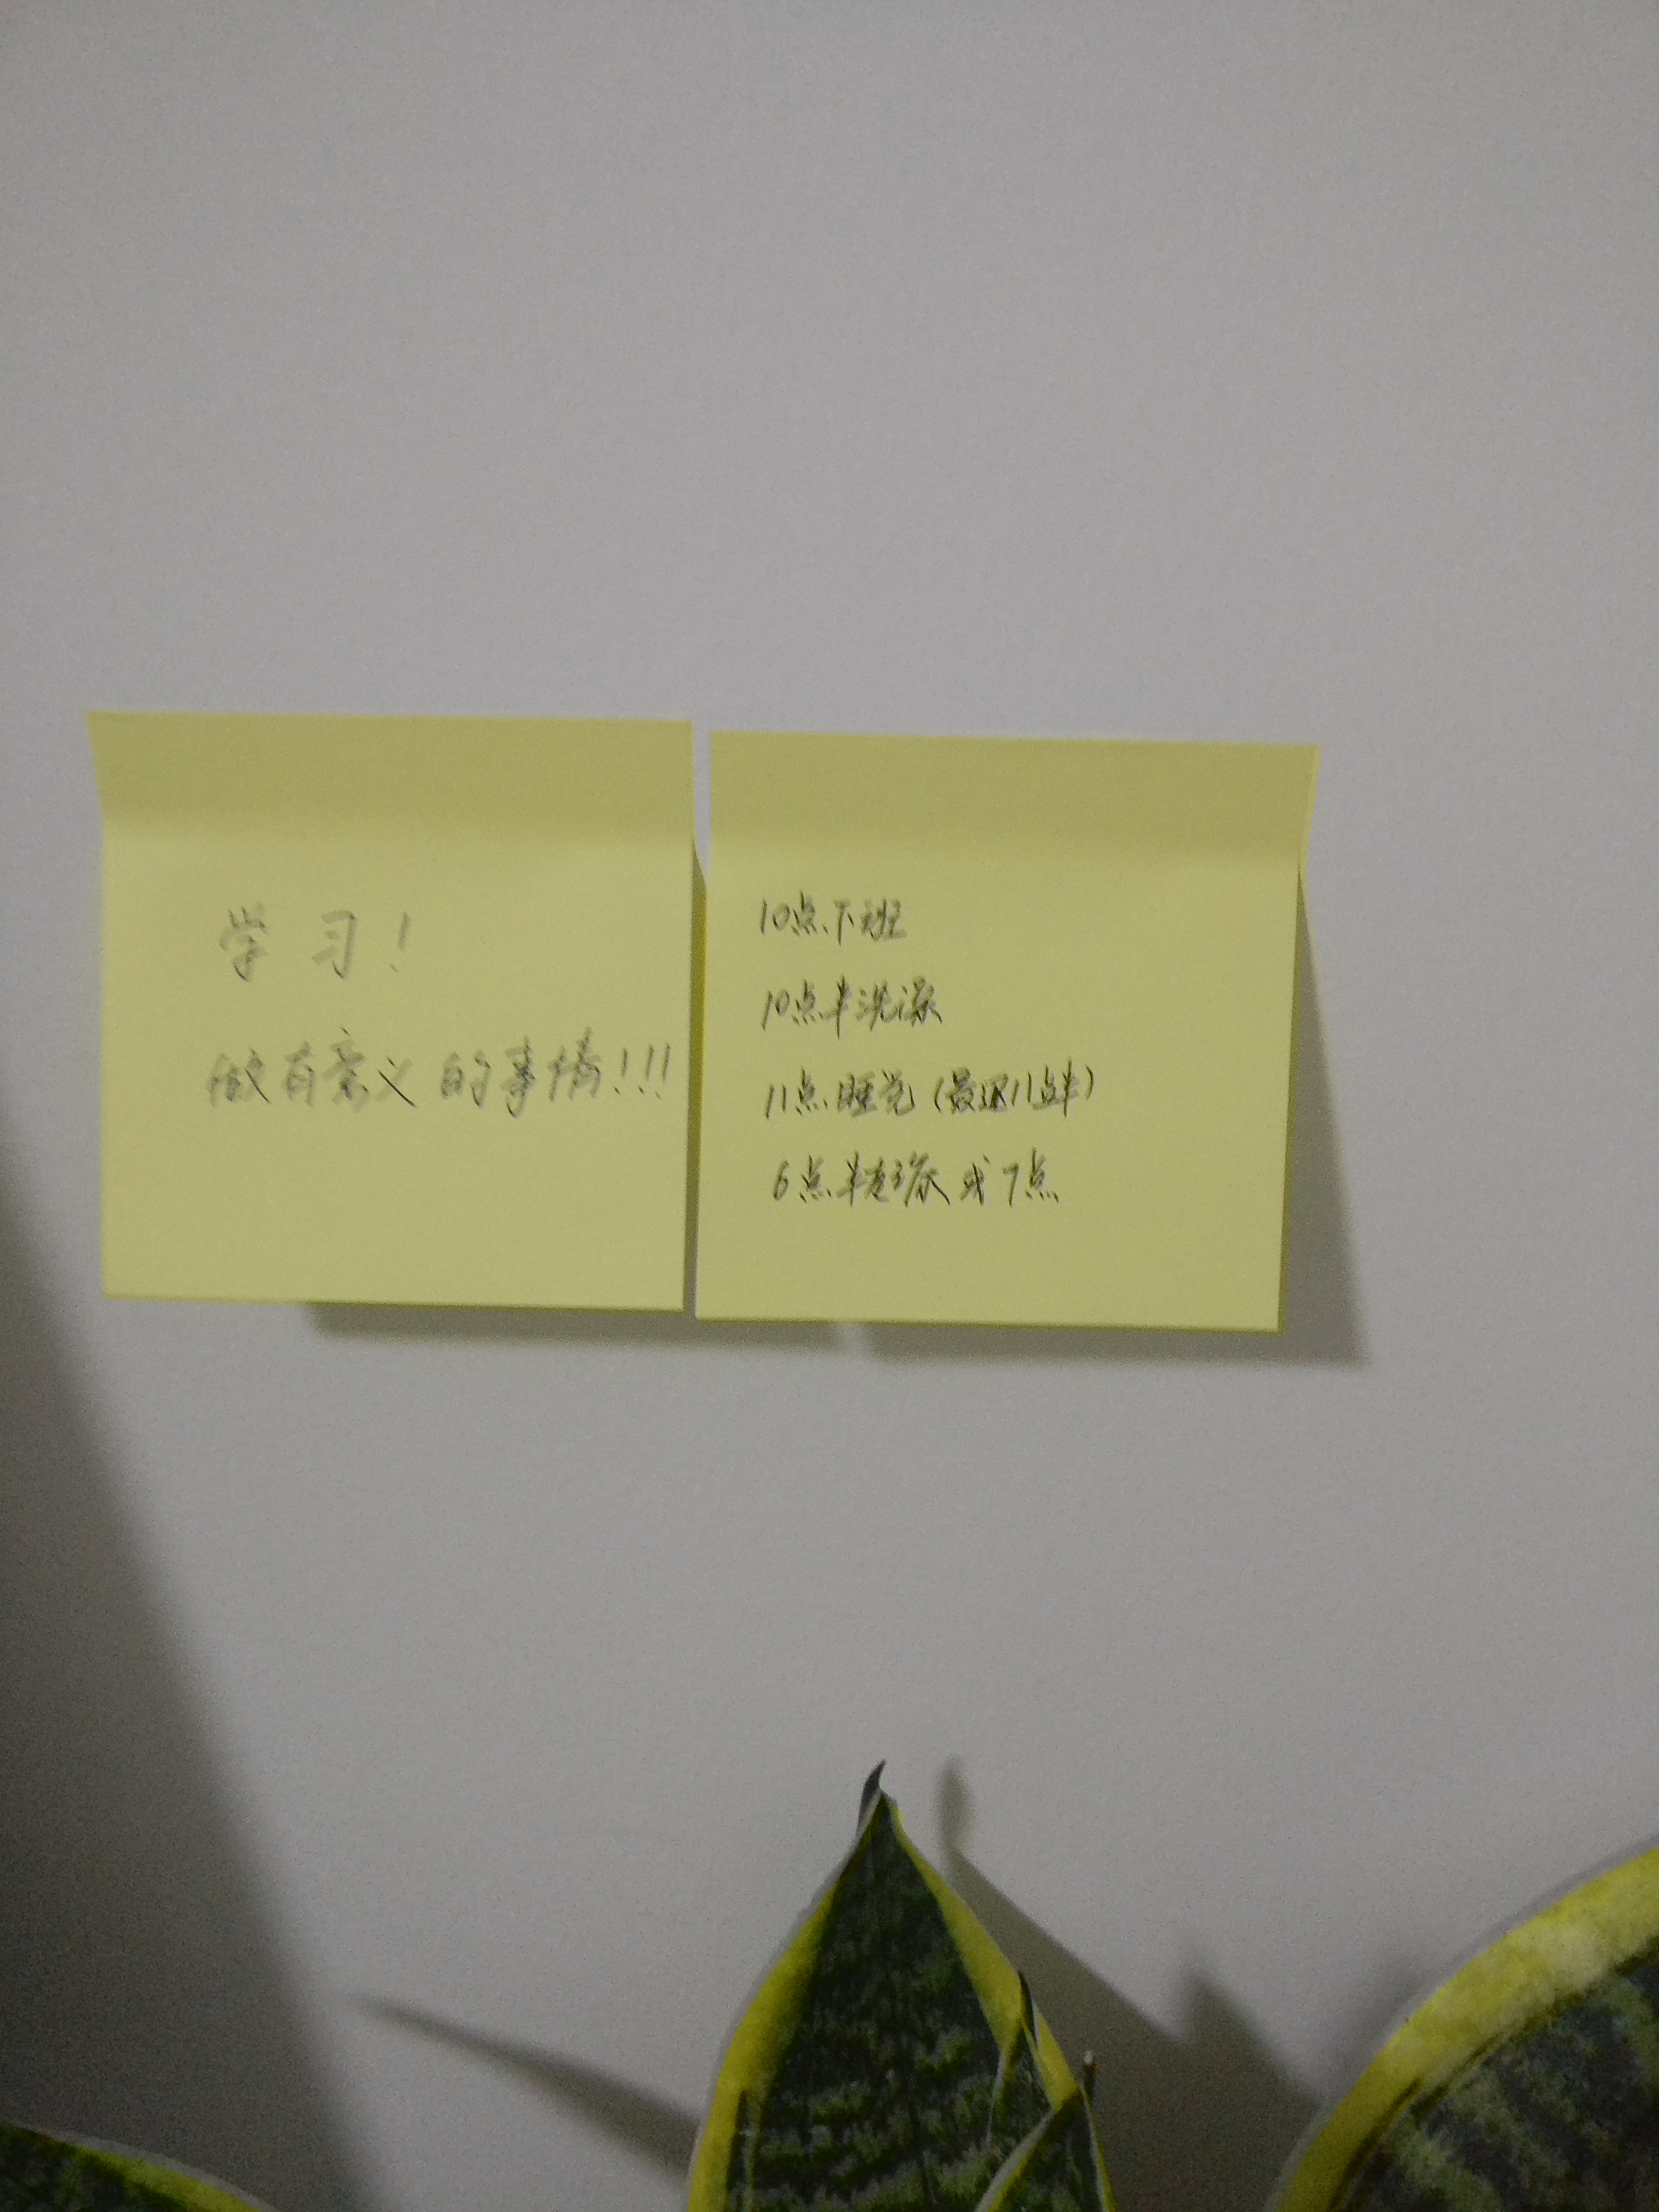 学习！
做有意义的事情！！！
10点下班
10点半洗澡
11点睡觉（最迟11点半）
6点半起床或7点